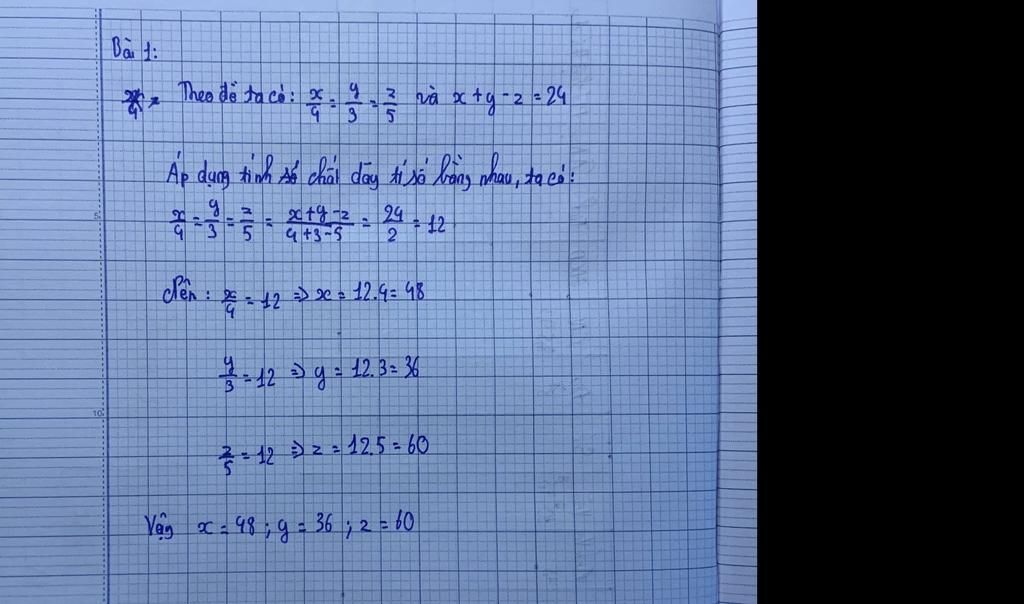 Bài 1:
Theo đề ta có: x/4 = y/3 = z/5 và x + y - z = 24
Áp dụng tính chất dãy tỉ số bằng nhau, ta có:
x/4 = y/3 = z/5 = x+y-z/4+3-5 = 24/2 = 12
Nên: x/4 = 12 => x = 12.4 = 48
y/3 = 12 => y = 12.3 = 36
z/5 = 12 => z = 12.5 = 60
Vậy x = 48 ; y = 36 ; z = 60
5
10